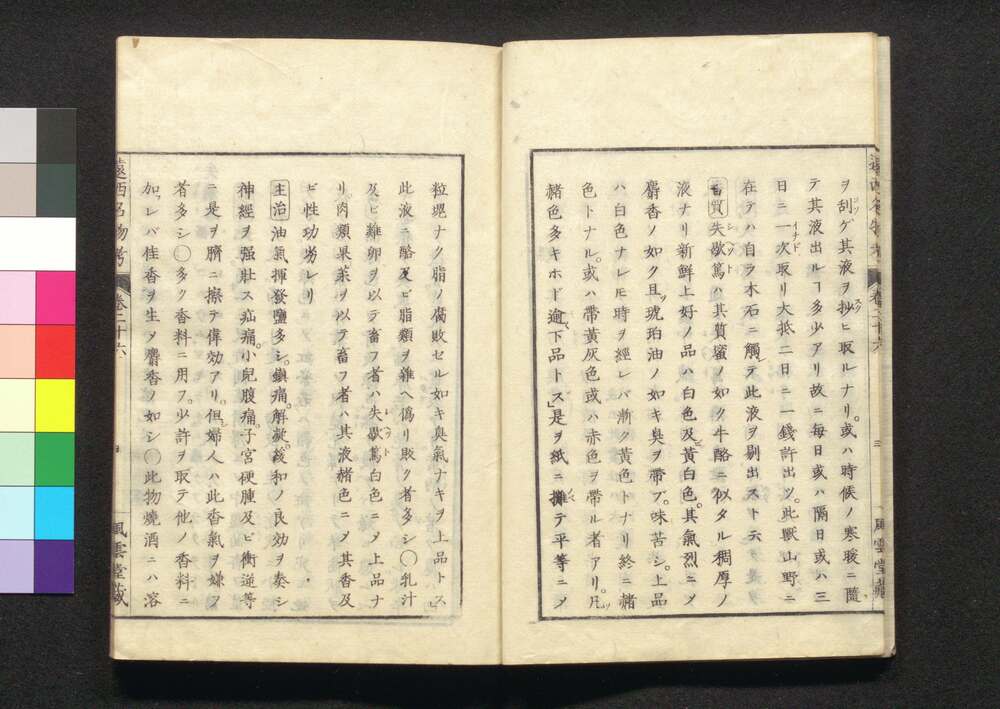 ヲ刮ゲ其液ヲ抄ヒ取ルナリ。或ハ時候ノ寒暖ニ隨
テ其液出ルヿ多少アリ故ニ毎日或ハ隔日或ハ三
日ニ一次取リ大抵二日ニ一錢許出ツ。此獸山野ニ
在テハ自ラ木石ニ觸レテ此液ヲ剔出スト云フ
香質 失歇篤ハ其質蜜ノ如ク牛酪ニ似タル稠厚ノ
液ナリ新鮮上好ノ品ハ白色及ビ黄白色。其氣烈ニメ
麝香ノ如ク且ツ琥珀油ノ如キ臭ヲ帶ブ。味苦シ。上品
ハ白色ナレ𪜈時ヲ經レバ漸ク黄色トナリ終ニ赭
色トナル。或ハ帶黄灰色或ハ赤色ヲ帶ル者アリ。凡ソ
赭色多キホド逾下品トス」是ヲ紙ニ攤テ平等ニメ
粒塊ナク脂ノ腐敗セル如キ臭氣ナキヲ上品トス」
此液ニ酪及ビ脂類ヲ雜ヘ僞リ販ク者多シ〇乳汁
及ビ雞卵ヲ以テ畜フ者ハ失歇篤白色ニメ上品ナ
リ。肉類果菜ヲ以テ畜フ者ハ其液赭色ニメ其香及
ビ性功劣レリ
主治 油氣揮發鹽多シ。鎭痛。解凝。緩和ノ良効ヲ奏シ
神經ヲ强壯ス疝痛。小兒腹痛。子宮硬腫及ビ衝逆等
ニ是ヲ臍ニ擦テ偉効アリ。但シ婦人ハ此香氣ヲ嫌フ
者多シ〇多ク香料ニ用フ。少許ヲ取テ他ノ香料ニ
加フレバ佳香ヲ生ズ麝香ノ如シ〇此物燒酒ニハ溶
遠西名物考
卷二十六
風雲堂藏